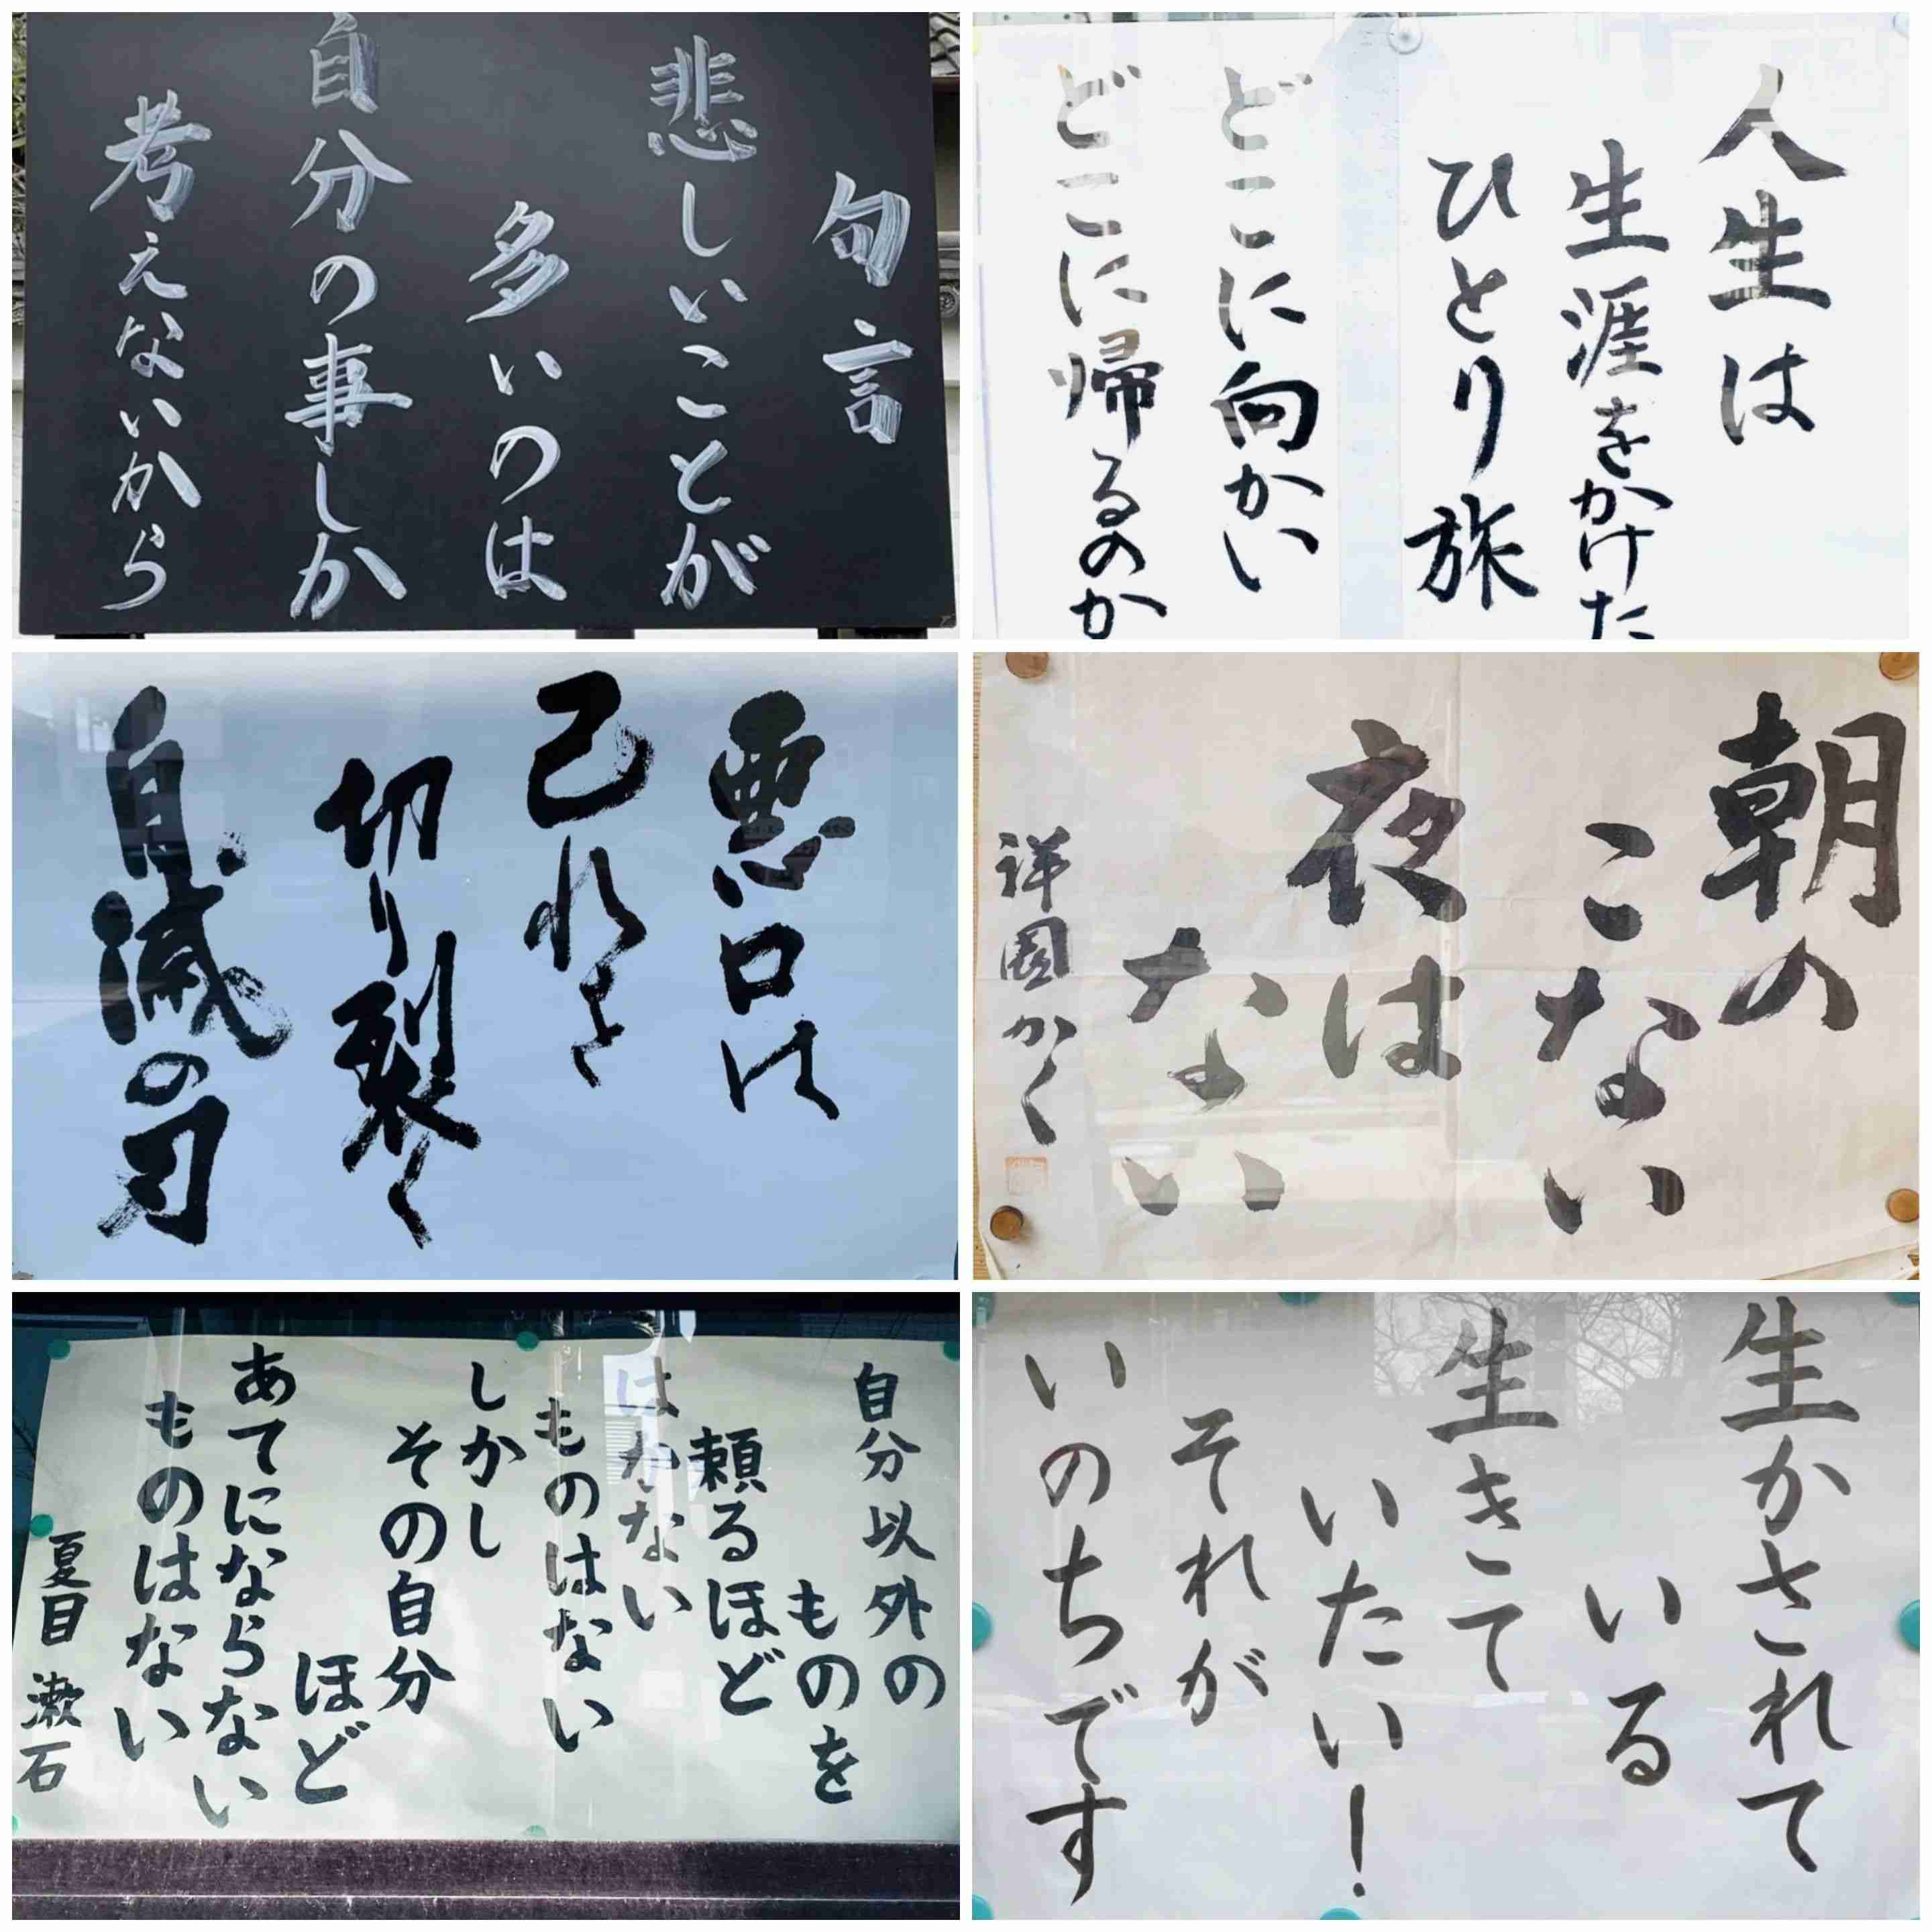 句言
悲しいことが
多いのは
自分の事しか
考えないから
人生は
生涯をかけた
ひとり旅
どこに向かい
どこに帰るのか
悪口は
己れを
切り裂く
自滅の刃
朝の
こない
夜は
ない
祥園かく
自分以外の
ものを
頼るほど
はかない
ものはない
しかし
その自分
ほど
あてにならない
ものはない
夏目漱石
生かされて
いる
生きて
いたい!
それが
いのちです